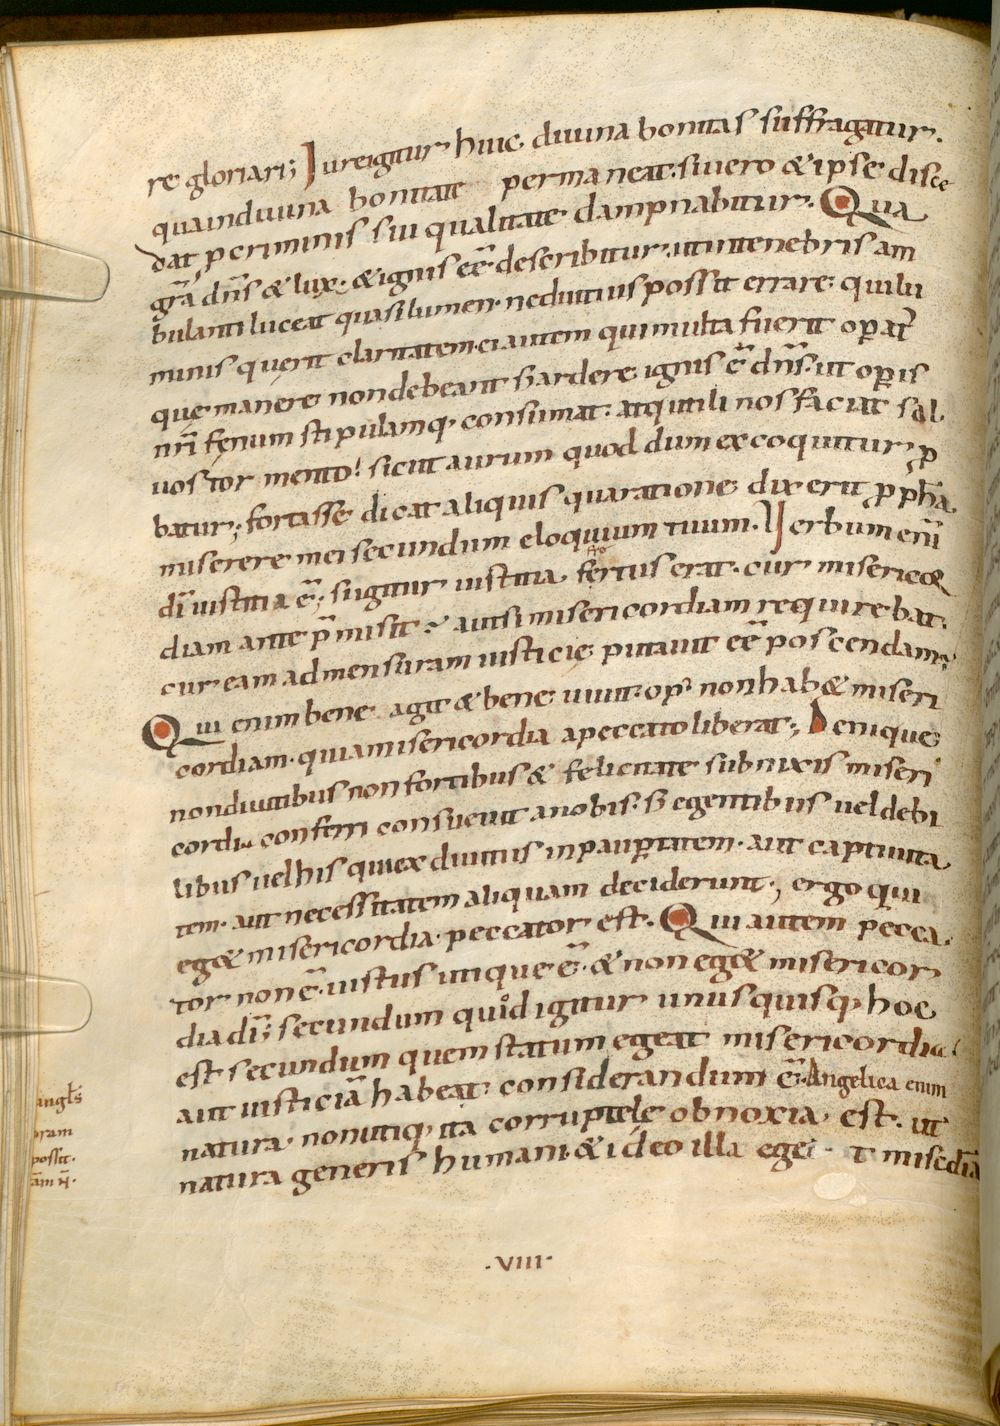 re gloriari; Iure igitur huic divina bonitas suffragatur.
qua in divina bonitate permaneat. si vero & ipse disce
dat p criminis sui qualitate dampnabitur. Qua
gr̄a dn̄s & lux. & ignis eē describitur. ut in tenebris am
bulanti luceat quasi lumen. ne diutius possit errare. qui lu
minis querit claritatem. ei autem qui multa fuerit opat᷒
quę manere non debeant s̄ ardere. ignis ē dn̄s. ut opis
nr̄i fęnum stipulamq. consumat. atq utili nos faciat sal
vos tormento! sicut aurum quod dum excoquitur, p
batur; fortasse dicat aliquis qua ratione dixerit pph̄a
miserere mei secundum eloquium tuum. Verbum eni̅
dī iustitia ē; si igitur iustitia fertus erat. cur misericor
diam ante p̄misit? aut si misericordiam requirebat.
cur eam ad mensuram iusticię putavit eē poscendam?
Qui enim bene agit & bene vivit. op᷒ non hab& miseri
cordiam. quia misericordia a peccato liberat; Denique
non divitibus non fortibus & felicitate subnixis miseri
cordia conferri consuevit a nobis. s̄ egentibus vel debi
libus vel his qui ex divitiis in paupertatem. aut captivita
tem. aut necessitatem aliquam deciderunt; ergo qui
eg& misericordia. peccator est. Qui autem pecca
tor non ē. iustus utique ē. & non eg& misericor
dia dī; secundum quid igitur unus quisq, hoc
est secundum quem statum egeat misericordia.
aut iusticiā habeat. considerandum ē. Angelica enim
natura. non utiq ita corruptele obnoxia est. ut
natura generis humani. & ideo illa ege t misedīa
anglis
oram
possit.
.VIII.